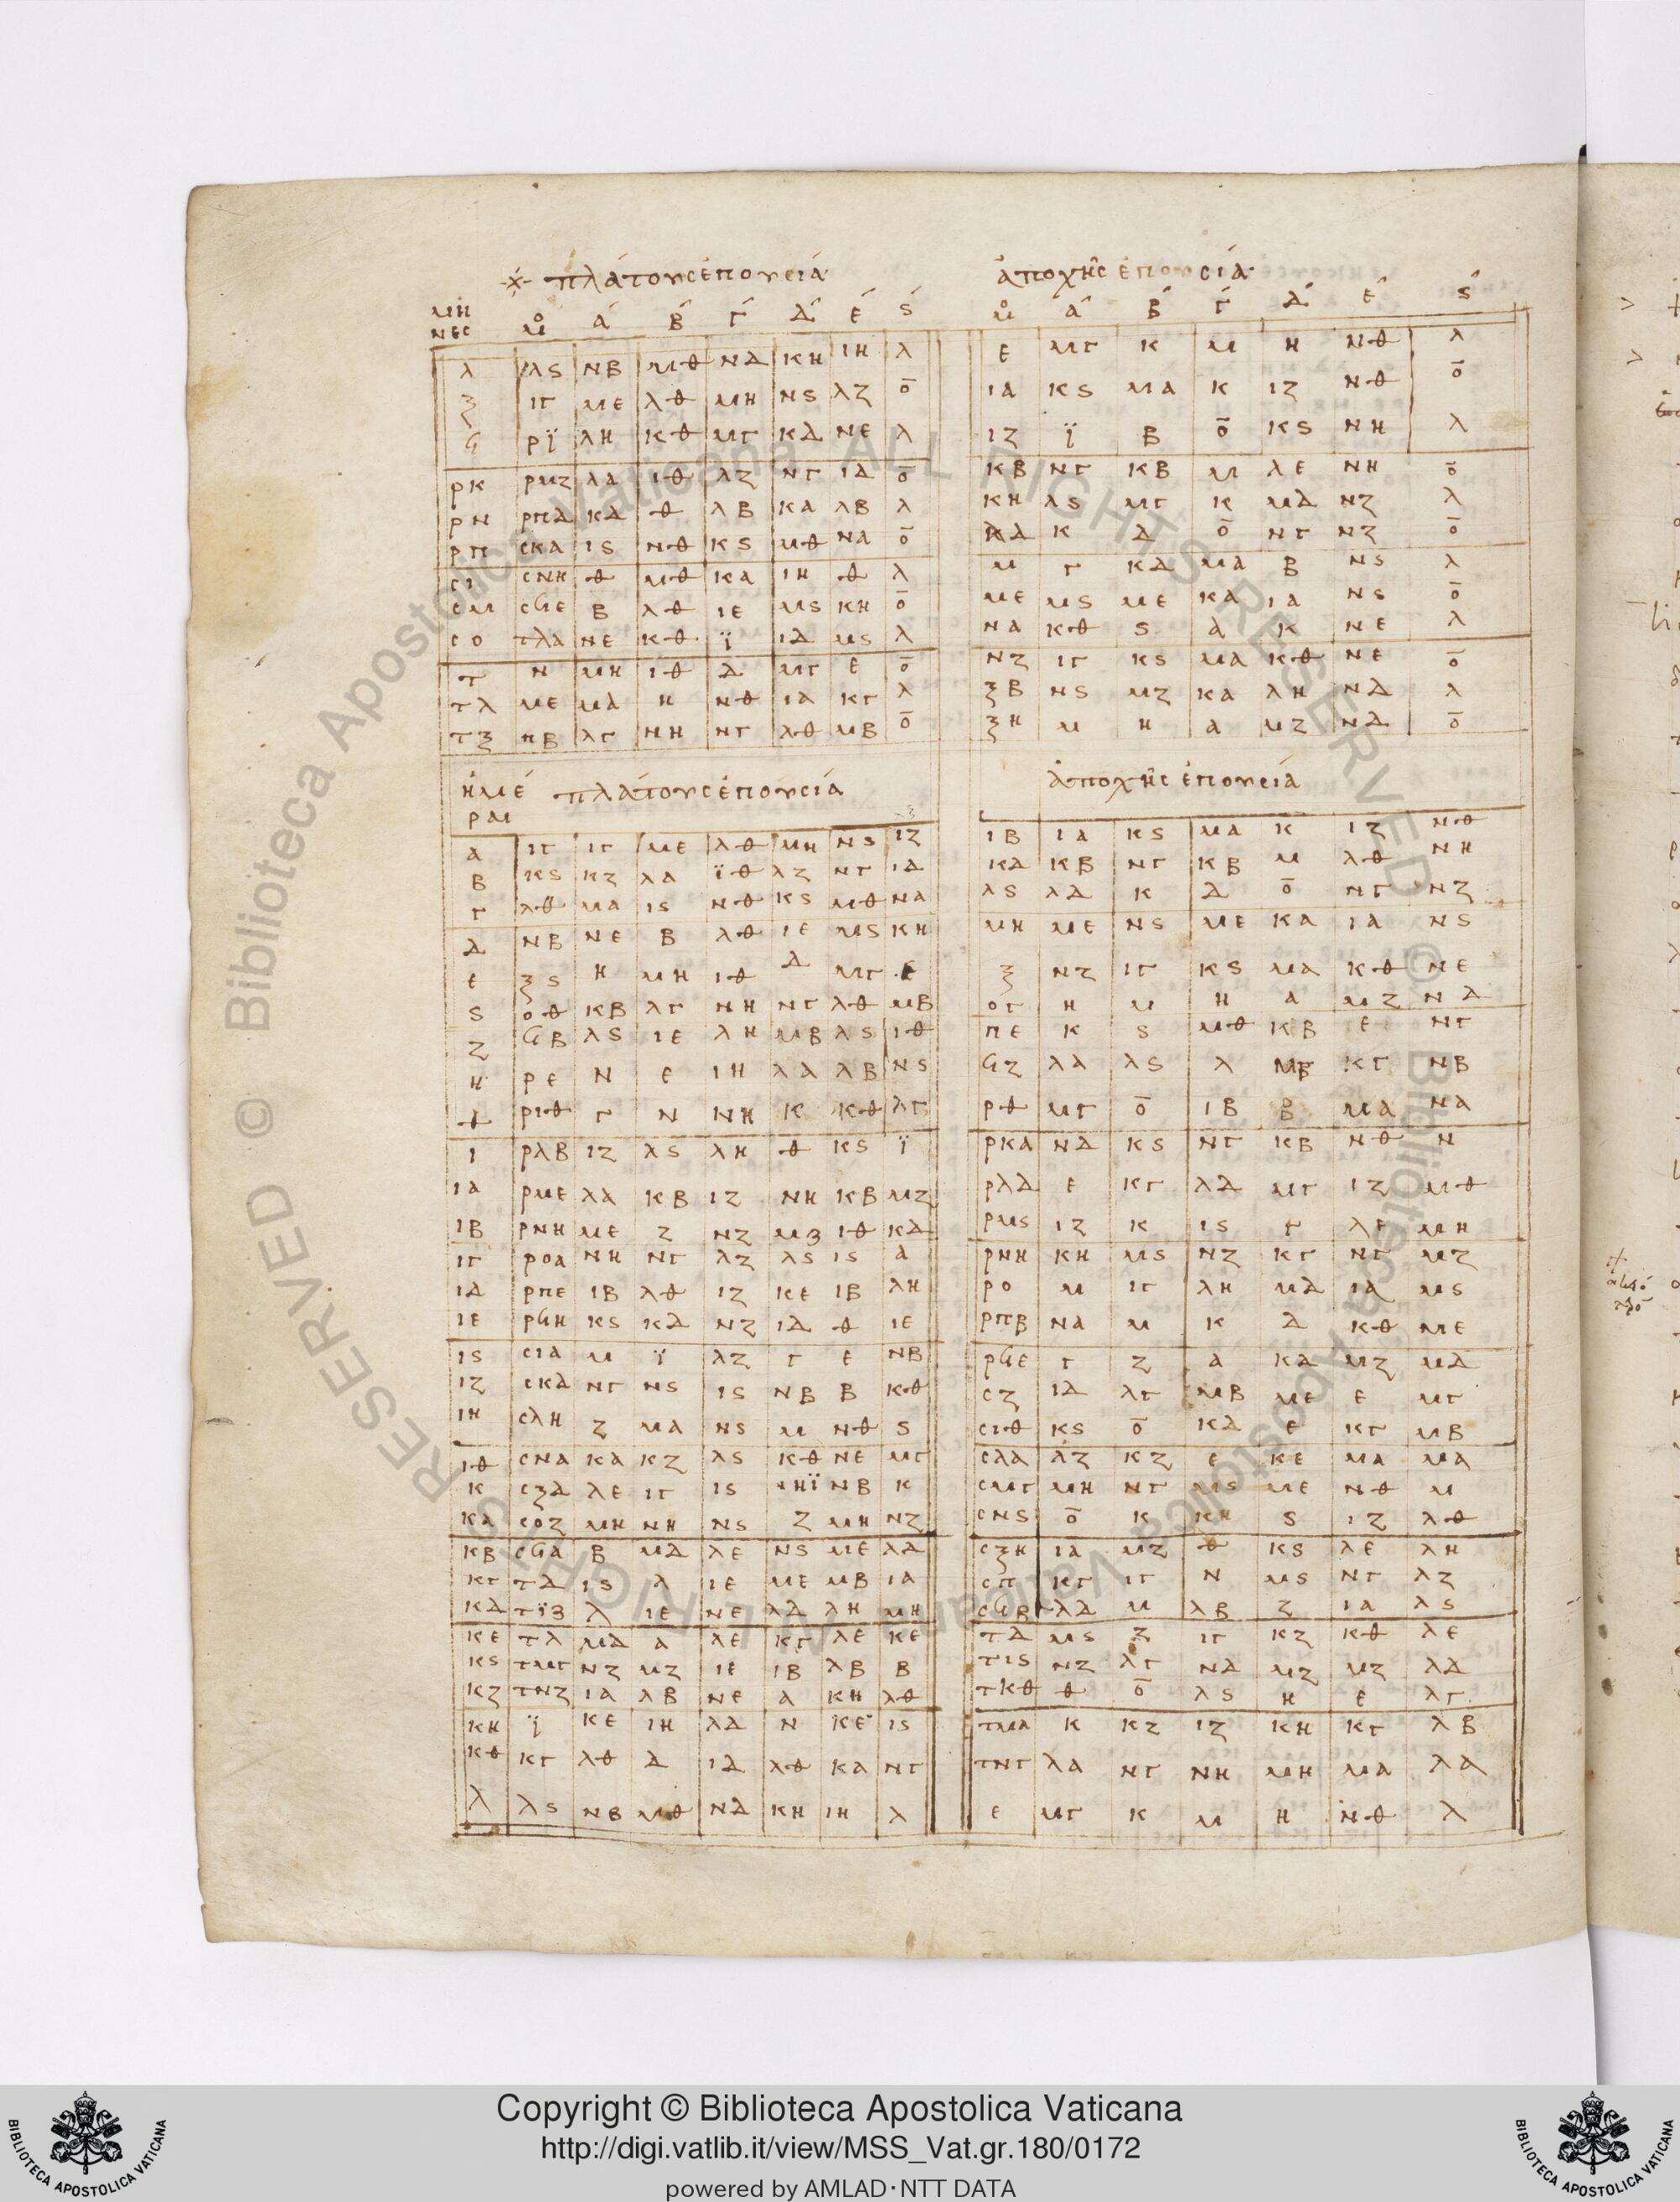 πλάτους ἐπουσία ἀποχῆς ἐπουσία
ΜΗΝΕϹ μο Α Β Γ Δ Ε Ϛ μο Α Β Γ Δ Ε Ϛ
λ λϛ νβ μθ νδ κη ιη λ ε μγ κ μ η νθ λ
ξ ιγ με λθ μη νϛ λζ ο ια κϛ μα κ ιζ νθ ο
ϟ ρϊ λη κθ μγ κδ νε λ ιζ ϊ β ο κϛ νη λ
ρκ ρμζ λα ιθ λζ νγ ιδ ο κβ νγ κβ μ λε νη ο
ρν ρπδ κδ θ λβ κα λβ λ κη λϛ μγ κ μδ νζ λ
ρπ σκα ιϛ νθ κϛ μθ να ο λδ κ δ ο νγ νζ ο
σι σνη θ μθ κα ιη θ λ μ γ κδ μα β νϛ λ
σμ σϟε β λθ ιε μϛ κη ο με μϛ με κα ια νϛ ο
σο τλα νε κθ ϊ ιδ μϛ λ να κθ ϛ α κ νε λ
τ η μη ιθ δ μγ ε ο νζ ιγ κϛ μα κθ νε ο
τλ με μα η νθ ια κγ λ ξβ νϛ μζ κα λη νδ λ
τξ πβ λγ νη νγ λθ μβ ο ξη μ η α μζ νδ ο
ἡμέραι πλάτους ἐπουσία ἀποχῆς ἐπουσία
α ιγ ιγ με λθ μη νϛ ιζ ιβ ια κϛ μα κ ιζ νθ
β κϛ κζ λα ϊθ λζ νγ ιδ κδ κβ νγ κβ μ λθ νη
γ λθ μα ιϛ νθ κϛ μθ να λϛ λδ κ δ ο νγ νζ
δ νβ νε β λθ ιε μϛ κη μη με νϛ με κα ια νϛ
ε ξϛ η μη ιθ δ μγ ε ξ νζ ιγ κϛ μα κθ νε
ϛ οθ κβ λγ νη νγ λθ μβ ογ η μ η α μζ νδ
ζ ϟβ λϛ ιε λη μβ λϛ ιθ πε κ ϛ μθ κβ ε νγ
η ρε ν ε ιη λα λβ νϛ ϟζ λα λϛ λ μβ κγ νβ
θ ριθ γ ν νη κ κθ λγ ρθ μγ ο ιβ β μα να
ι ρλβ ιζ λϛ λη θ κϛ ϊ ρκα νδ κϛ νγ κβ νθ ν
ια ρμε λα κβ ιζ νη κβ μζ ρλδ ε κγ λδ μγ ιζ μθ
ιβ ρνη με ζ νζ μζ ιθ κδ ρμϛ ιζ κ ιϛ γ λε μη
ιγ ροα νη νγ λζ λϛ ιϛ α ρνη κη μϛ νζ κγ νγ μζ
ιδ ρπε ιβ λθ ιζ κε ιβ λη ρο μ ιγ λη μδ ια μϛ
ιε ρϟη κϛ κδ νζ ιδ θ ιε ρπβ να μ κ δ κθ με
ιϛ σια μ ϊ λζ γ ε νβ ρϟε γ ζ α κδ μζ μδ
ιζ σκδ νγ νϛ ιϛ νβ β κθ σζ ιδ λγ μβ με ε μγ
ιη σλη ζ μα νϛ μ νθ ϛ σιθ κϛ ο κδ ε κγ μβ
ιθ σνα κα κζ λϛ κθ νε μγ σλα λζ κζ ε κε μα μα
κ σξδ λε ιγ ιϛ ιηϊ νβ κ σμγ μη νγ μϛ με νθ μ
κα σοζ μη νη νϛ ζ μη νζ σνϛ ο κ κη ϛ ιζ λθ
κβ σϟα β μδ λε νϛ με λδ σξη ια μζ θ κϛ λε λη
κγ τδ ιϛ λ ιε με μβ ια σπ κγ ιγ ν μϛ νγ λζ
κδ τϊζ λ ιε νε λδ λη μη σϟβ λδ μ λβ ζ ια λϛ
κε τλ μδ α λε κγ λε κε τδ μϛ ζ ιγ κζ κθ λε
κϛ τμγ νζ μζ ιε ιβ λβ β τιϛ νζ λγ νδ μζ μζ λδ
κζ τνζ ια λβ νε α κη λθ τκθ θ ο λϛ η ε λγ
κη ϊ κε ιη λδ ν κε ιϛ τμα κ κζ ιζ κη κγ λβ
κθ κγ λθ δ ιδ λθ κα νγ τνγ λα νγ νη μη μα λα
λ λϛ νβ μθ νδ κη ιη λ ε μγ κ μ η νθ λ
RESERVED © Biblioteca Apostolica Vaticana ALL RIGHTS RESERVED © Biblioteca Apostolica Vaticana ALL RIGHTS
Copyright © Biblioteca Apostolica Vaticana
http://digi.vatlib.it/view/MSS_Vat.gr.180/0172
powered by AMLAD·NTT DATA
BIBLIOTECA APOSTOLICA VATICANA
BIBLIOTECA APOSTOLICA VATICANA